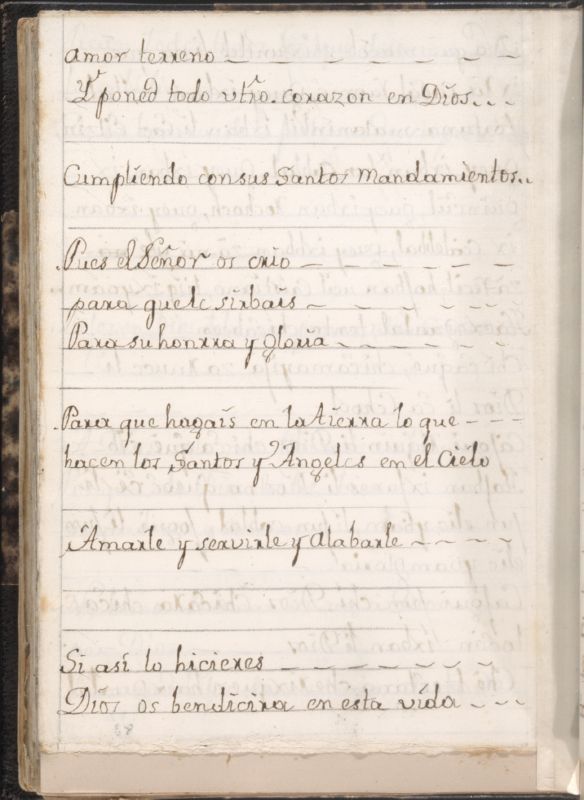 amor terreno
Y poned todo vtro. corazon en Dios
Cumpliendo con sus Santos Mandamientos
Pues el Señor os crio
para que le sirbais
Para su honrra y gloria
Para que hagais en la tierra lo que
hacen los Santos y Angeles en el Cielo
Amarle y servirle y Alabarle
Si asi lo hiciereis
Dios os bendicira en esta vida